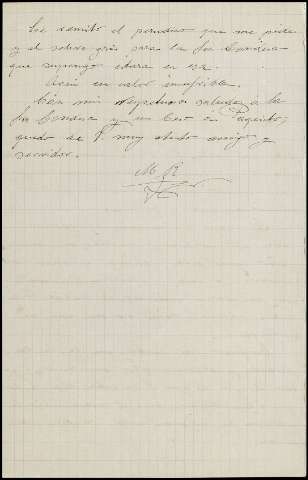 Le remito el periodico que me pide
y el sobre gris para la Sra Condesa
que supongo estara en esa.
Aqui un calor insufrible.
Con mis respetuosos saludos a la
Sra Condesa y un beso a Paquito,
queda de V. muy atento amigo y
servidor.
M R